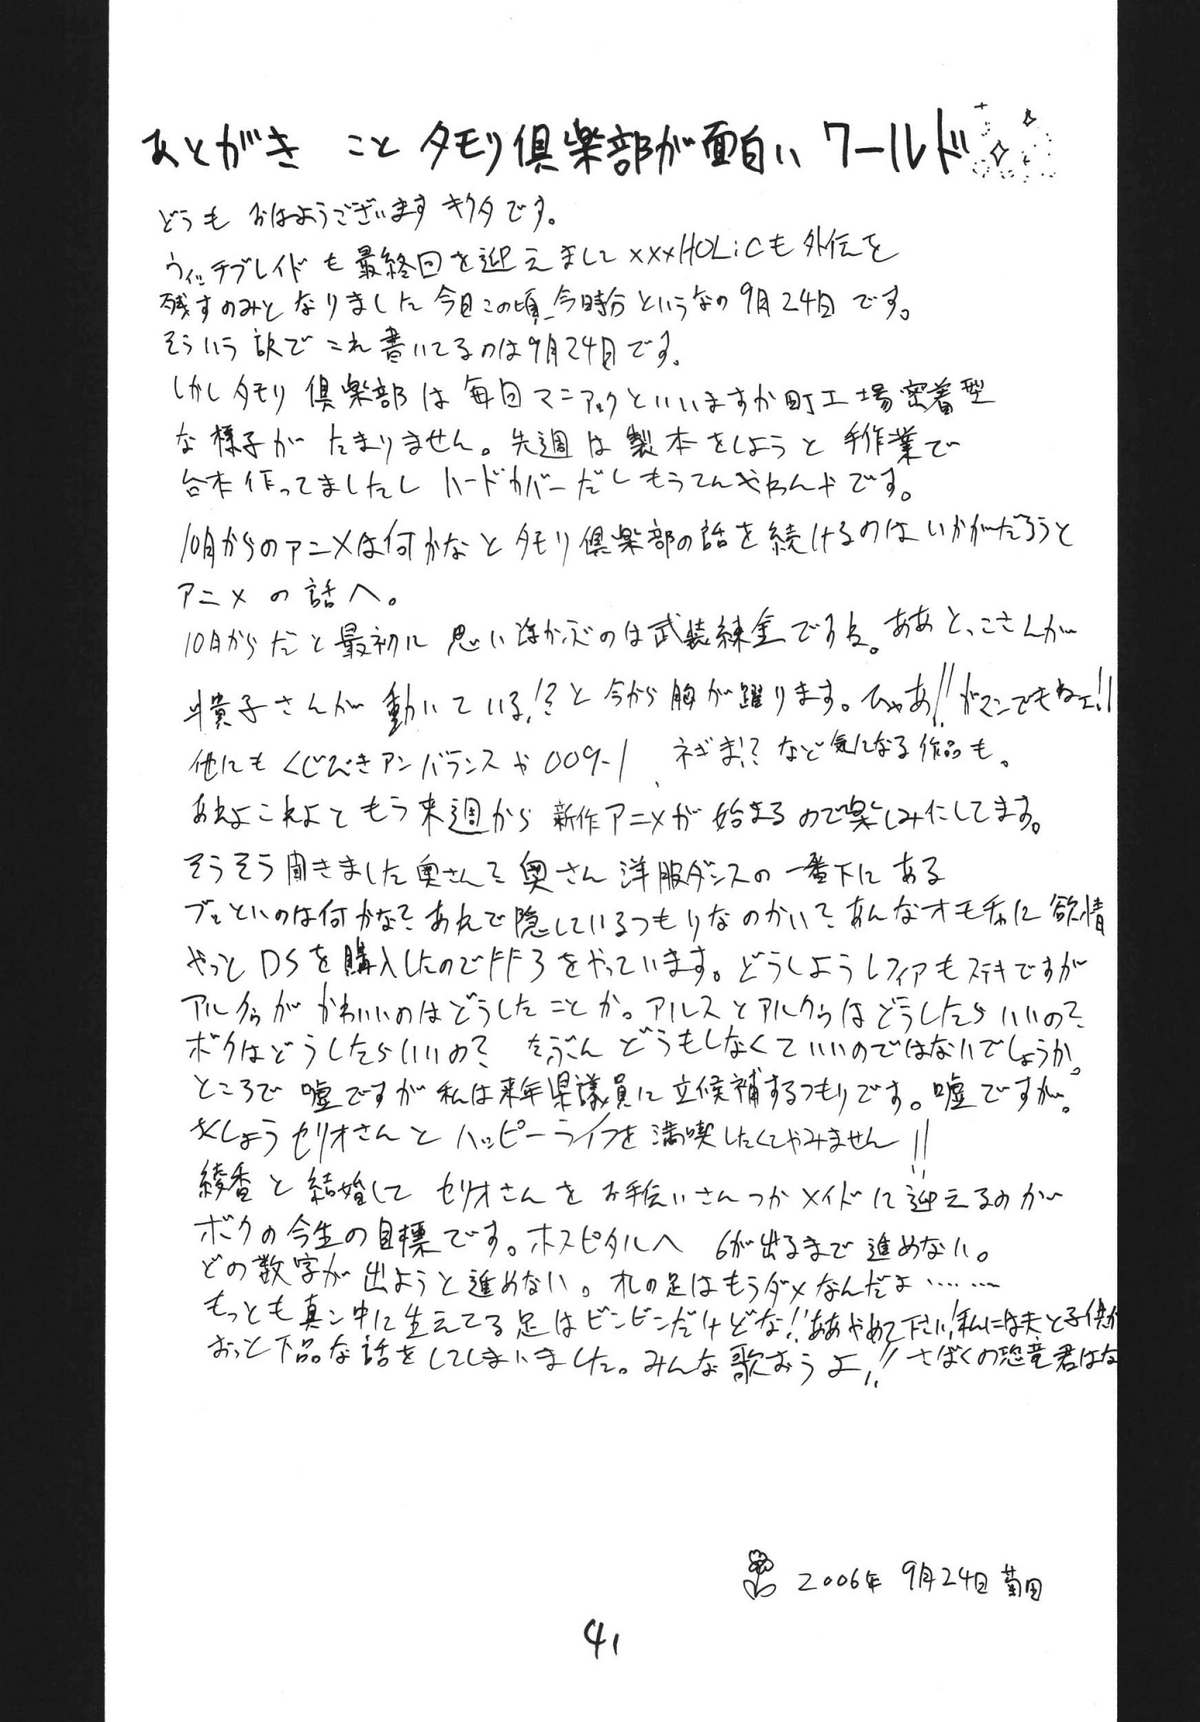 あとがき こと タモリ倶楽部が面白い ワールド
どうも おはようございます キクタです。
ウィッチブレイドも最終回を迎えまして×××HOLiCも外伝を
残すのみとなりました今日この頃、今時分というなの9月24日です。
そういう訳でこれ書いてるのは9月24日です。
しかしタモリ倶楽部は毎回マニアックといいますか町工場密着型
な様子がたまりません。先週は製本をしようと手作業で
合本作ってましたしハードカバーだしもうてんやわんやです。
10月からのアニメは何かなとタモリ倶楽部の話を続けるのはいかがだろうと
アニメの話へ。
10月からだと最初に思い浮かぶのは武装錬金ですね。ああとっこさんが
斗貴子さんが動いている!?と今から胸が躍ります。ひゃあ!!ガマンでもねェ!!
他にもくじびきアンバランスや009-1、ネギま!?など気になる作品も。
あれよこれよともう来週から新作アニメが始まるので楽しみにしてます。
そうそう聞きました奥さん?奥さん洋服ダンスの一番下にある
ブッといのは何かな?あれで隠しているつもりなのかい?あんなオモチャに欲情
やっとDSを購入したのでFF3をやっています。どうしようレフィアもステキですが
アルクゥがかわいいのはどうしたことか。アルスとアルクゥはどうしたらいいの?
ボクはどうしたらいいの? たぶんどうもしなくていいのではないでしょうか。
ところで嘘ですが私は来年県議員に立候補するつもりです。嘘ですが。
ちくしょうセリオさんとハッピーライフを満喫したくてやみません!!
綾香と結婚してセリオさんをお手伝いさんつかメイドに迎えるのが
ボクの今生の目標です。ホスピタルへ 6が出るまで進めない。
どの数字が出ようと進めない。オレの足はもうダメなんだよ………
もっとも真ン中に生えてる足はビンビンだけどな!!ああやめて下さい!私には夫と子供が
おっと下品な話をしてしまいました。みんな歌おうよ!!さばくの恐竜君はな
2006年 9月24日 菊田
41